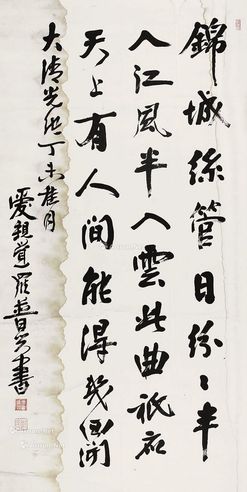 錦城絲管日紛〻半
入江風半入雲此曲祇應
天上有人間能得幾回聞
大清光緒丁未桂月
愛親覺羅書